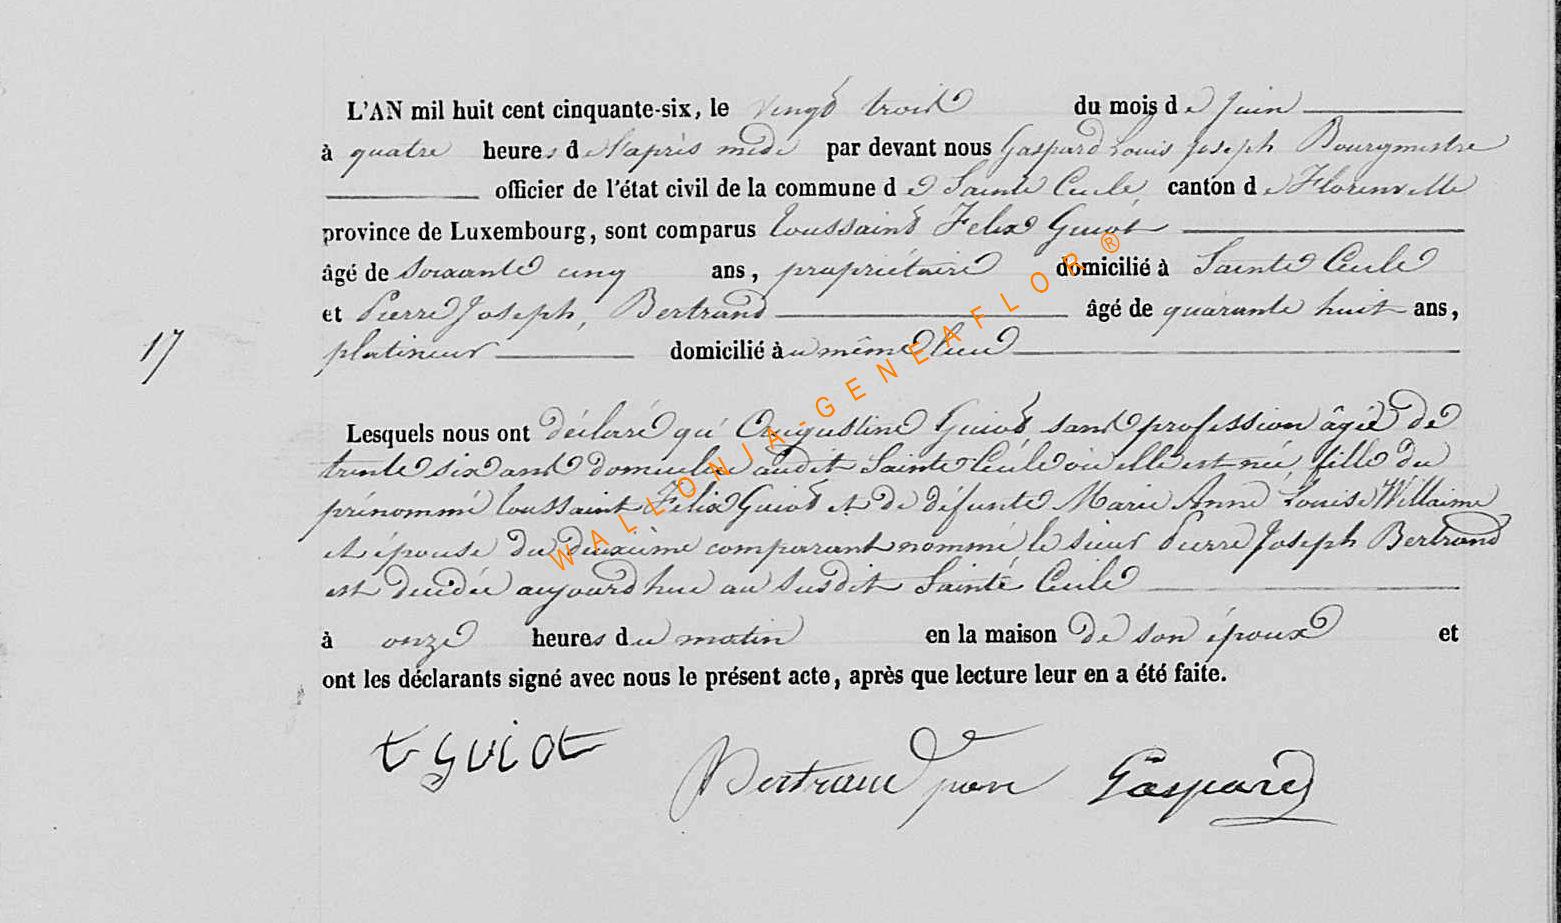 L'AN mil huit cent cinquante-six, le vingt trois du mois de Juin
à quatre heures de l'après midi par devant nous Gaspard Louis Joseph Bourgmestre
officier de l'état civil de la commune de Sainte Cécile canton de Florenville
province de Luxembourg, sont comparus Toussaint Felix Guiot
âgé de soixante cinq ans, propriétaire domicilié à Sainte Cécile
et Pierre Joseph, Bertrand âgé de quarante huit ans,
17
platineur domicilié au même lieu
Lesquels nous ont déclaré qu'Augustine Guiot sans profession âgée de
trente six ans domiciliée audit Sainte Cécile où elle est née, fille du
prénommé Toussaint Félix Guiot et de défunte Marie Anne Louise Willaime
et épouse du deuxième comparant nommé le sieur Pierre Joseph Bertrand
est décédée aujourd'hui au susdit Sainte Cécile
à onze heures du matin en la maison de son époux et
ont les déclarants signé avec nous le présent acte, après que lecture leur en a été faite.
t guiot Bertrand Gaspard
WALLONIA-GENEAFLOR®